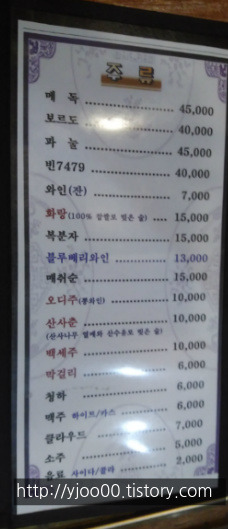 주 류
메 독 .......... 45,000
보르도 .......... 40,000
파 눌 .......... 45,000
빈7479 .......... 40,000
와인(잔) .......... 7,000
화랑(100% 찹쌀로 빚은 술) .... 15,000
복분자 .......... 15,000
블루베리와인 .......... 13,000
매취순 .......... 15,000
오디주(뽕와인) .......... 10,000
산사춘 .......... 10,000
(산사나무 열매와 산수유로 빚은 술)
백세주 .......... 10,000
막걸리 .......... 6,000
청하 .......... 6,000
맥주 하이트/카스 .......... 6,000
클라우드 .......... 7,000
소주 .......... 5,000
음료 사이다/콜라 .......... 2,000
http://yjoo00.tistory.com